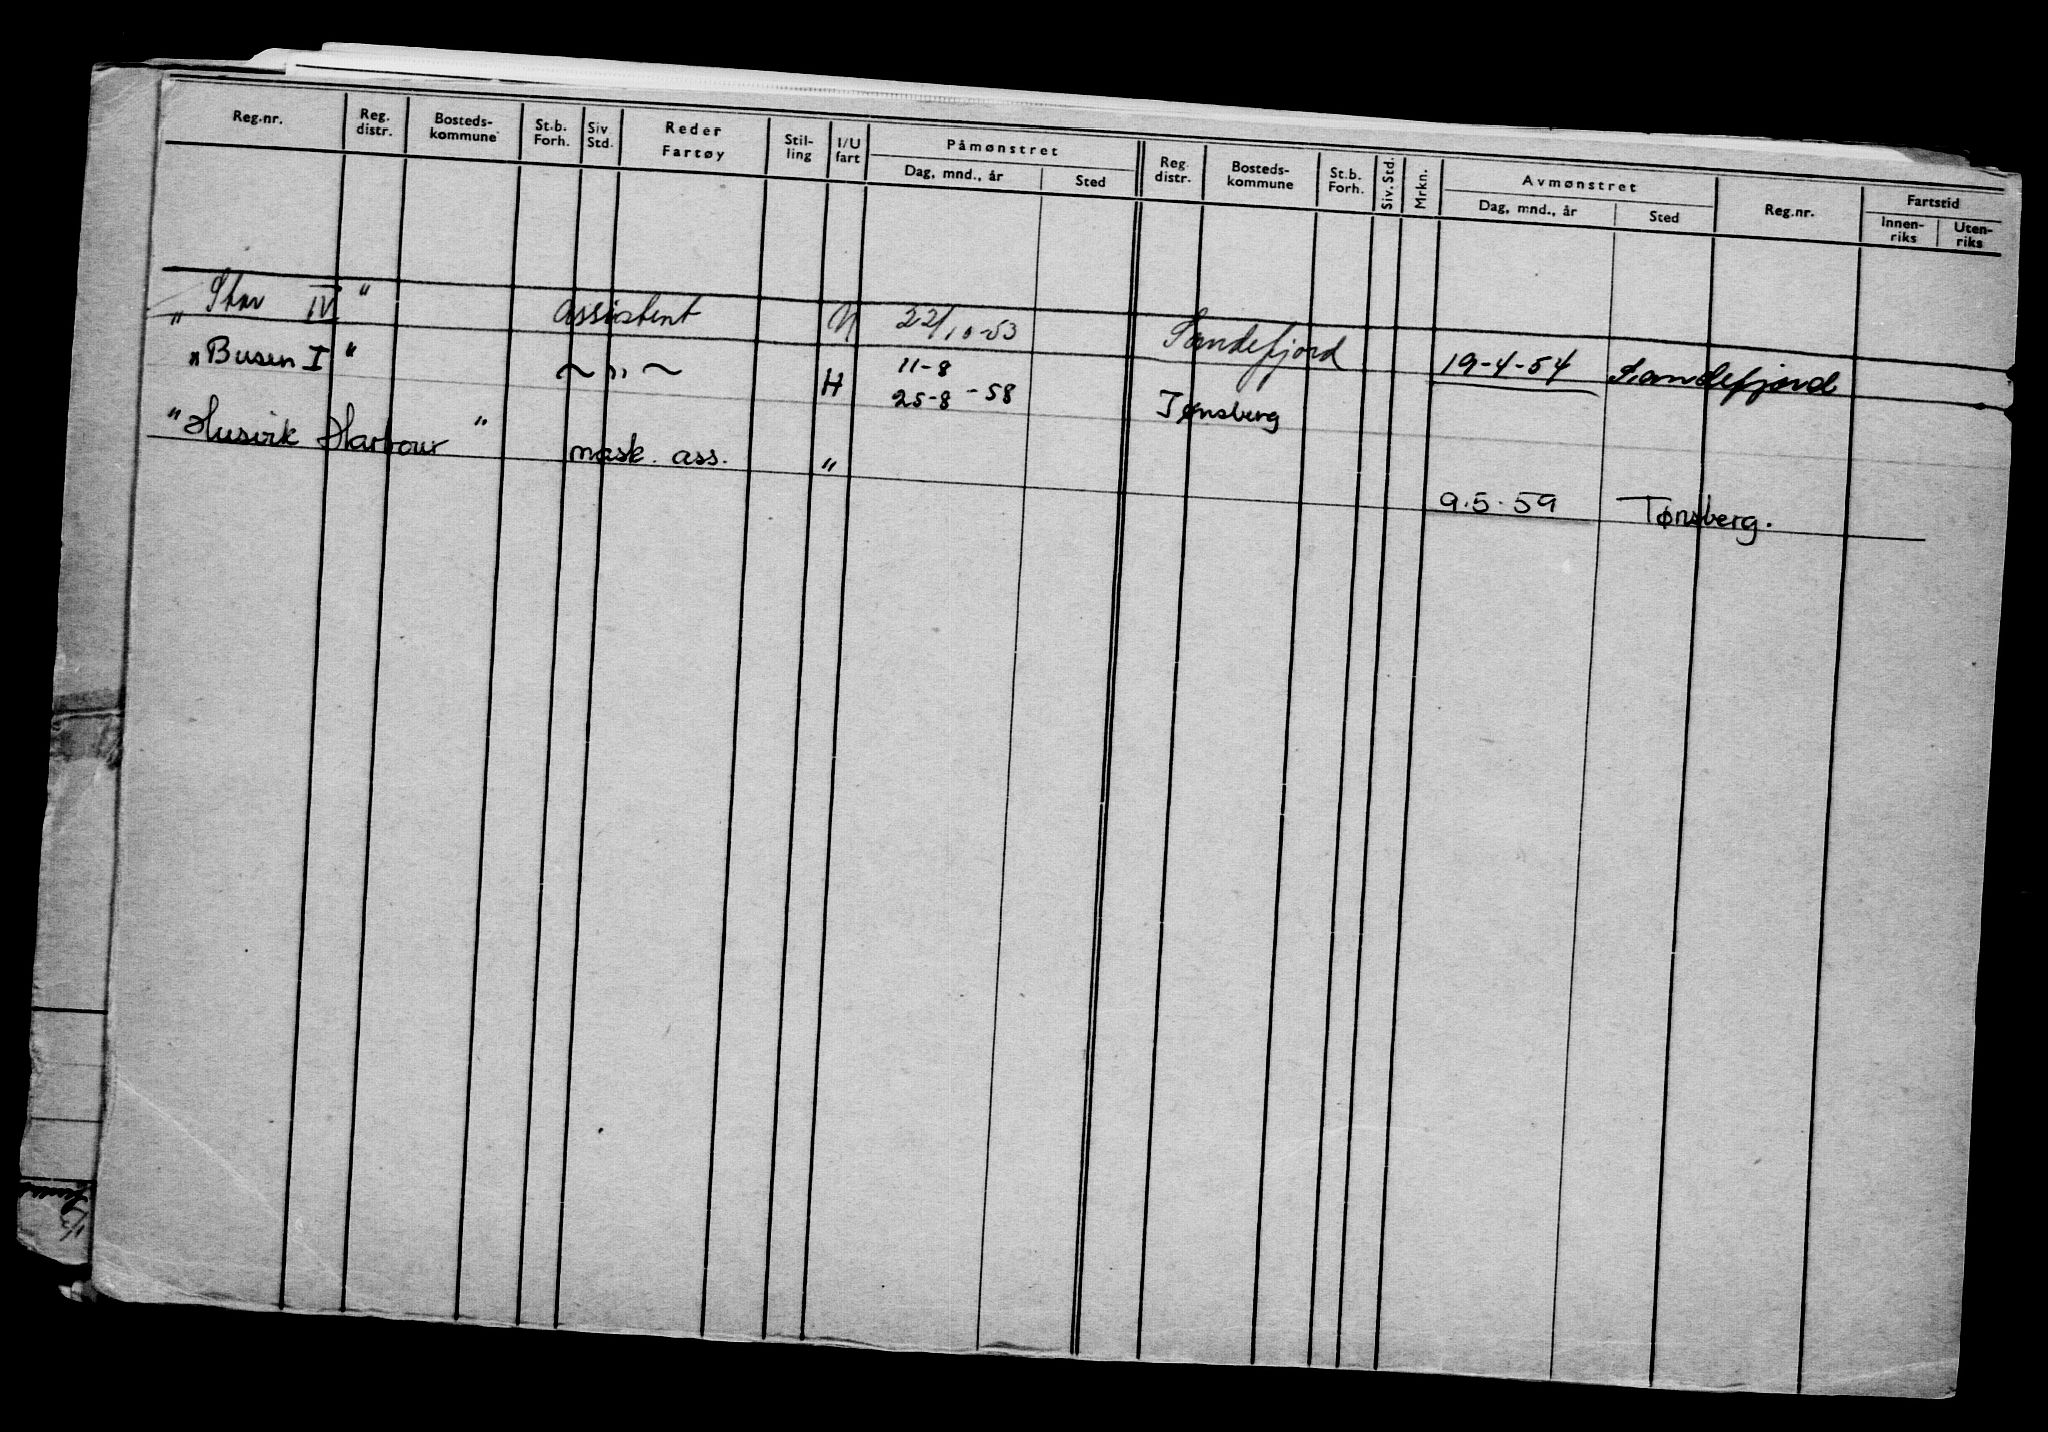 Reg.nr. Reg. distr. Bosteds-kommune St.b. Forh. Siv. Std. Reder Fartøy Stil-ling I/U fart Påmønstret Dag, mnd., år Sted Reg. distr. Bosteds-kommune St.b. Forh. Siv. Std. Mrkn. Avmønstret Dag, mnd., år Sted Reg.nr. Fartstid Innen-riks Uten-riks
„Star IV" assistent 22/10-53 Sandefjord 19-4-54 Sandefjord
„Busen I" ~ „ ~ H 11-8 25-8-58 Tønsberg
"Husvik Harbour" mask. ass. "
9.5.59 Tønsberg.